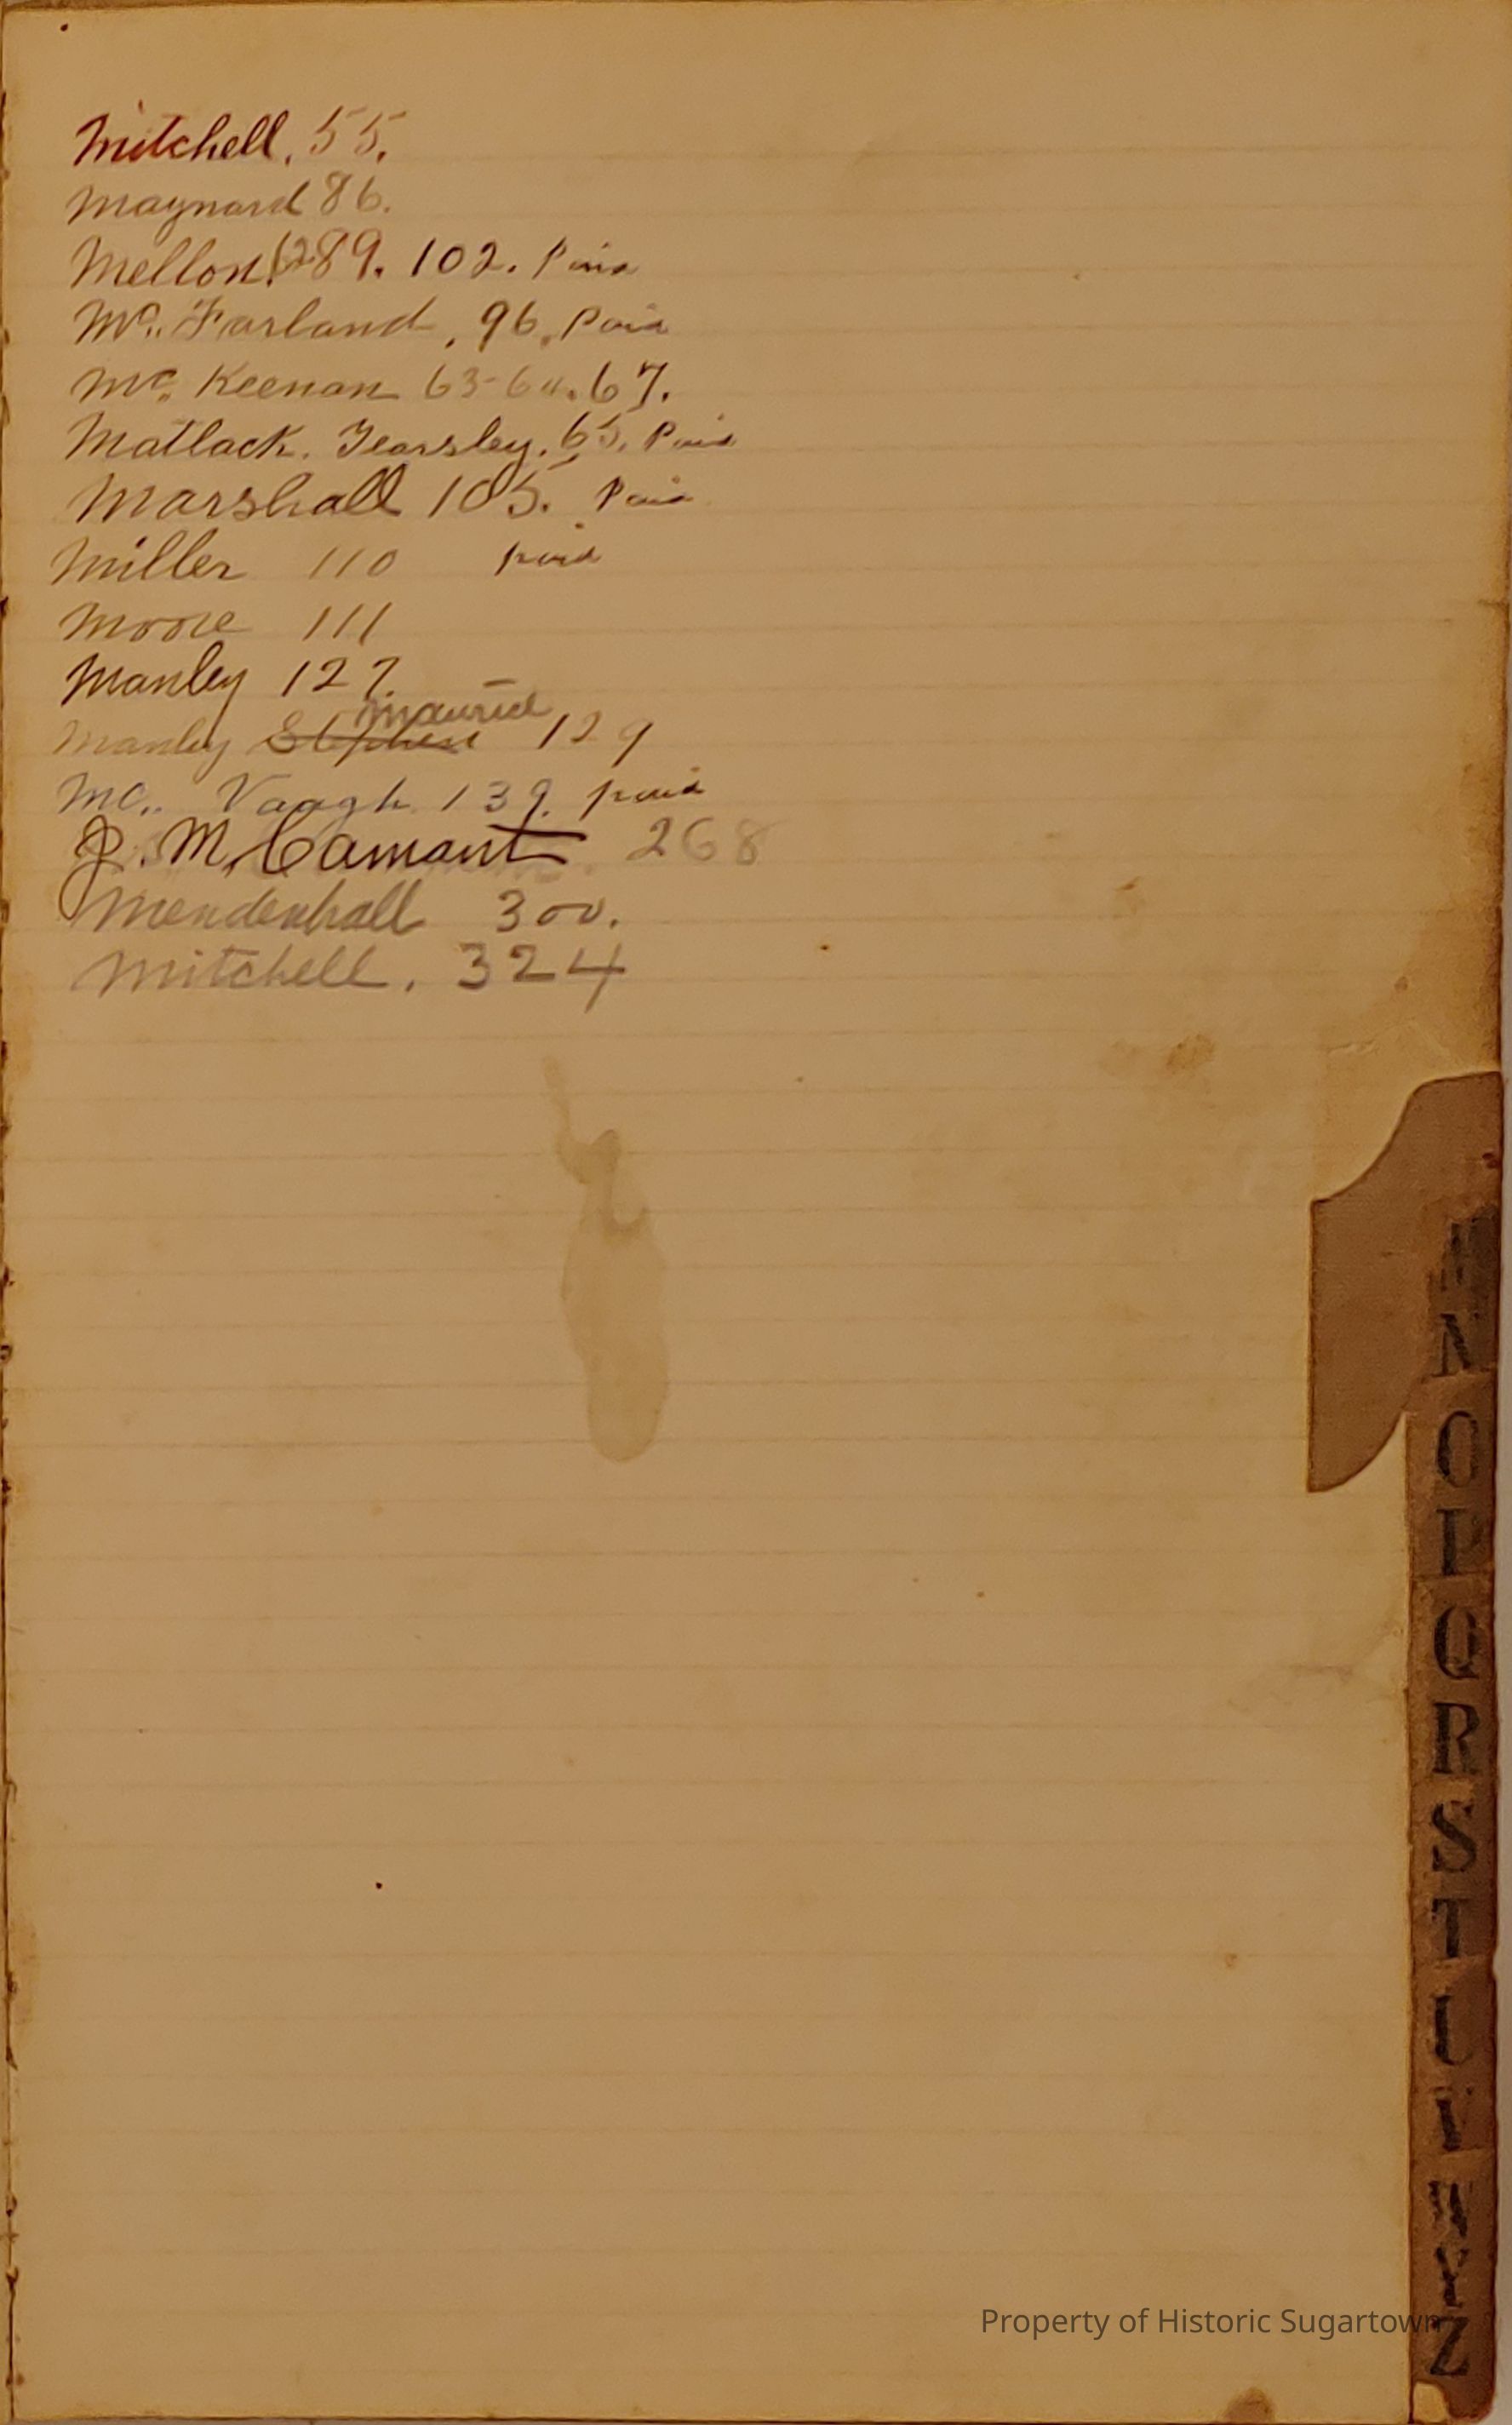 Mitchell. 55.
Maynard 86.
Mellon. 89. 102. Paid
Mc. Farland, 96. Paid
Mc. Keenan 63-64.67.
Matlack. Yearsley. 65. Paid
Marshall 105. Paid
Miller 110 paid
Moore 111
Manley 127.
Maurice
Manley Stephen 129
Mc.. Vaugh 139. paid
J. McCamant 268
Mendenhall 300.
Mitchell. 324
N
O
P
Q
R
S
T
U
V
W
Y
Z
Property of Historic Sugartown